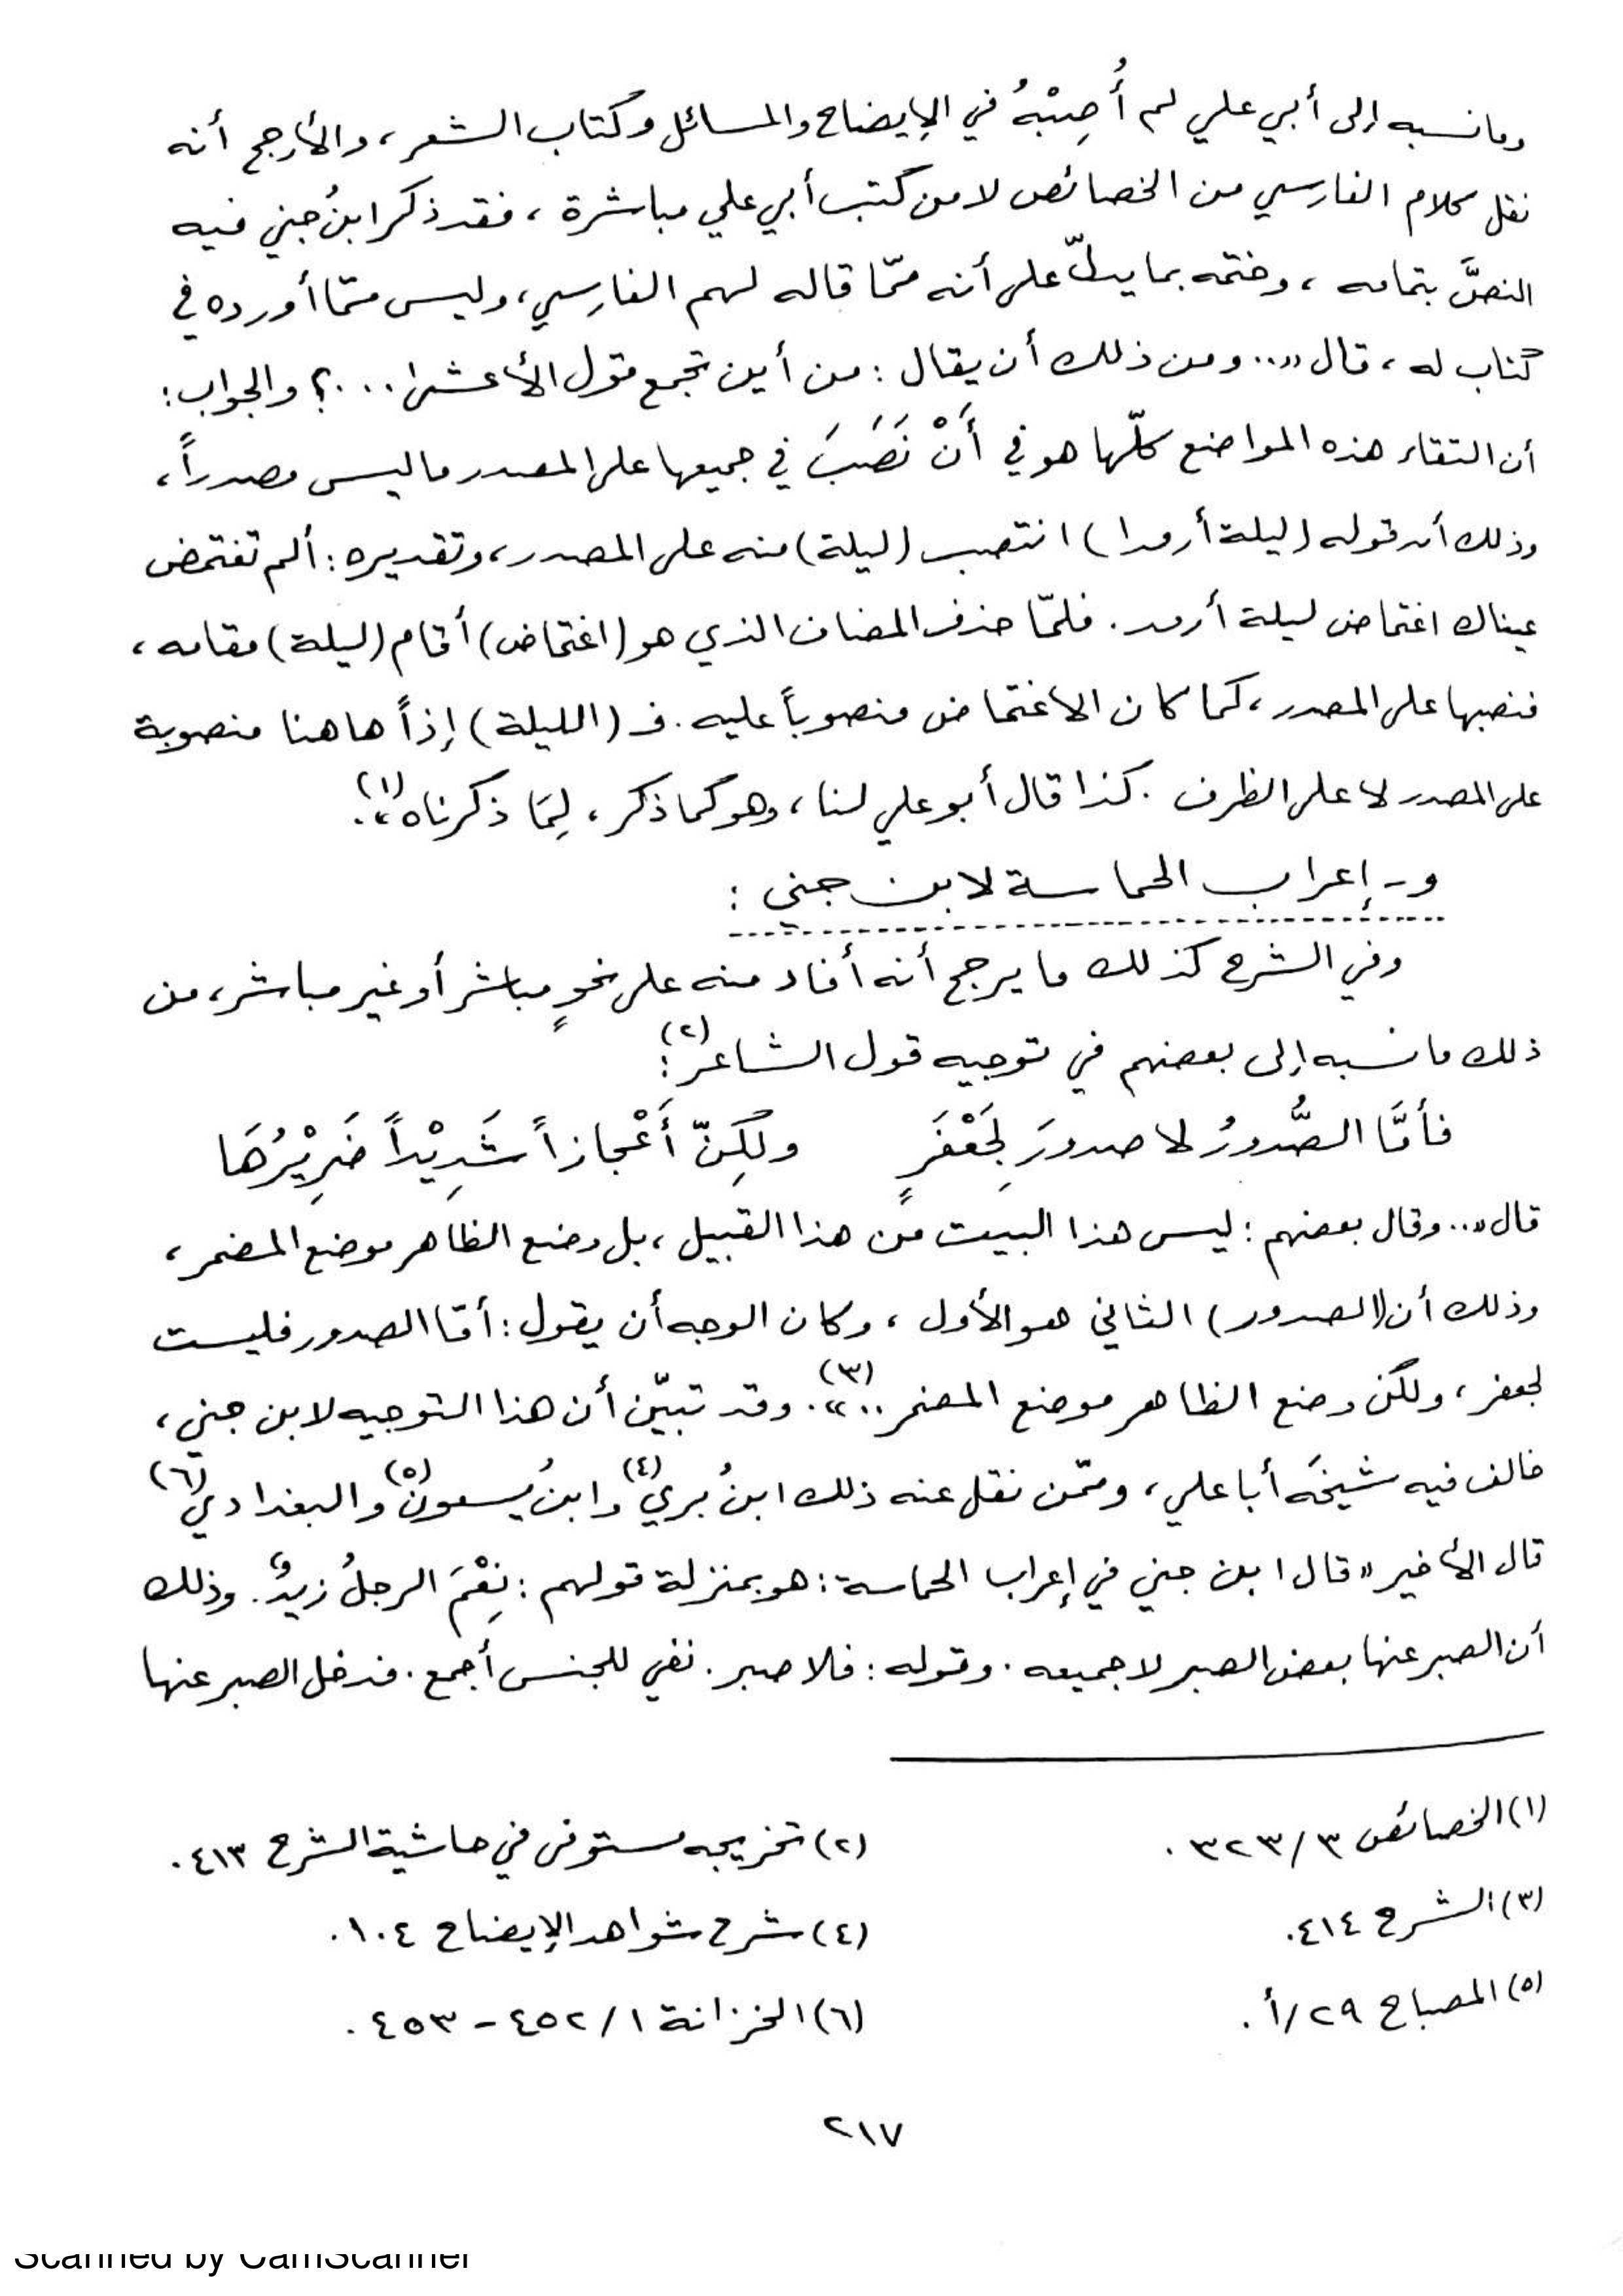 وما نسبه إلى أبي علي لم أُصِبْهُ في الإيضاح والمسائل وكتاب الشعر، والأرجح أنه
نقل كلام الفارسي من الخصائص لا من كتب أبي علي مباشرة، فقد ذكر ابنُ جني فيه
النصَّ بتمامه، وختمه بما يدلّ على أنه ممّا قاله لهم الفارسي، وليس ممّا أورده في
كتاب له، قال «.. ومن ذلك أن يقال: من أين تجمع قول الأعشى...؟ والجواب:
أن التقاء هذه المواضع كلّها هو في أَنْ نَصَبَ في جميعها على المصدر ما ليس مصدراً،
وذلك أن قوله (ليلة أرمدا) انتصب (ليلة) منه على المصدر، وتقديره: ألم تغتمض
عيناك اغتماض ليلة أرمد. فلمّا حذف المضاف الذي هو (اغتماض) أقام (ليلة) مقامه،
فنصبها على المصدر، كما كان الاغتماض منصوباً عليه. فـ (الليلة) إذاً ها هنا منصوبة
على المصدر لا على الظرف. كذا قال أبو علي لنا، وهو كما ذكر، لِمَا ذكرناه»(١).
و- إعراب الحماسة لابن جني:
وفي الشرح كذلك ما يرجح أنه أفاد منه على نحوٍ مباشر أو غير مباشر، من
ذلك ما نسبه إلى بعضهم في توجيه قول الشاعر(٢):
فأمَّا الصُّدورُ لا صدورَ لِجَعْفَرٍ    ولكِنّ أَعْجازاً شَدِيْداً ضَرِيْرُهَا
قال «.. وقال بعضهم: ليس هذا البيت من هذا القبيل، بل وضع الظاهر موضع المضمر،
وذلك أن (الصدور) الثاني هو الأول، وكان الوجه أن يقول: أمّا الصدور فليست
لجعفر، ولكن وضع الظاهر موضع المضمر..»(٣). وقد تبيّن أن هذا التوجيه لابن جني،
خالف فيه شيخَه أبا علي، وممّن نقل عنه ذلك ابنُ بري(٤) وابنُ يسعون(٥) والبغدادي(٦)
قال الأخير «قال ابن جني في إعراب الحماسة: هو بمنزلة قولهم: نِعْمَ الرجلُ زيدٌ. وذلك
أن الصبر عنها بعض الصبر لا جميعه. وقوله: فلا صبر. نفي للجنس أجمع. فدخل الصبر عنها
(١) الخصائص ٣/٣٢٣.
(٢) تخريجه مستوفى في حاشية الشرح ٤١٣.
(٣) الشرح ٤١٤.
(٤) شرح شواهد الإيضاح ١٠٤.
(٥) المصباح ٢٩/أ.
(٦) الخزانة ١/٤٥٢ - ٤٥٣.
٢١٧
Scanned by CamScanner